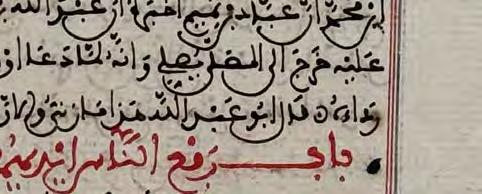 ابن محمد ان عباد بن تميم اخبره ان عبد الله بن
عليه خرج الى المصلى يصلي وانه لما دعا او
رداءه قال ابو عبد الله هذا مازني والاول
باب رفع الناس ايديهم